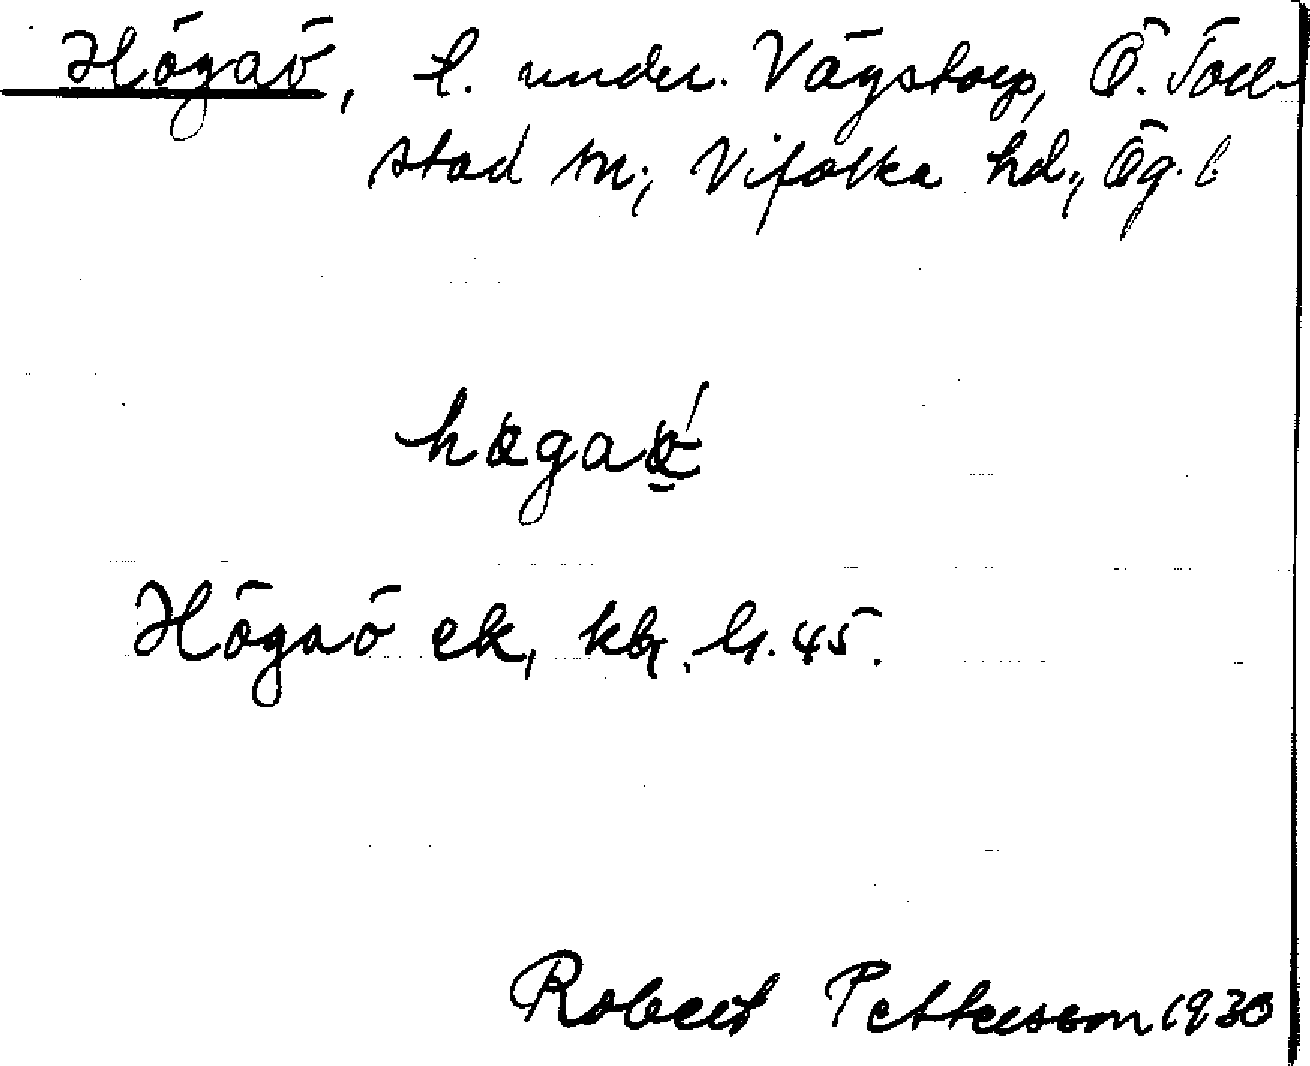 Högaö, l. under. Vägstorp, Ö. Toll-
stad sn; Vifolka hd;, Ög. l
Högaö ek, kbr. bl. 45.
Robert Pettersson 1930